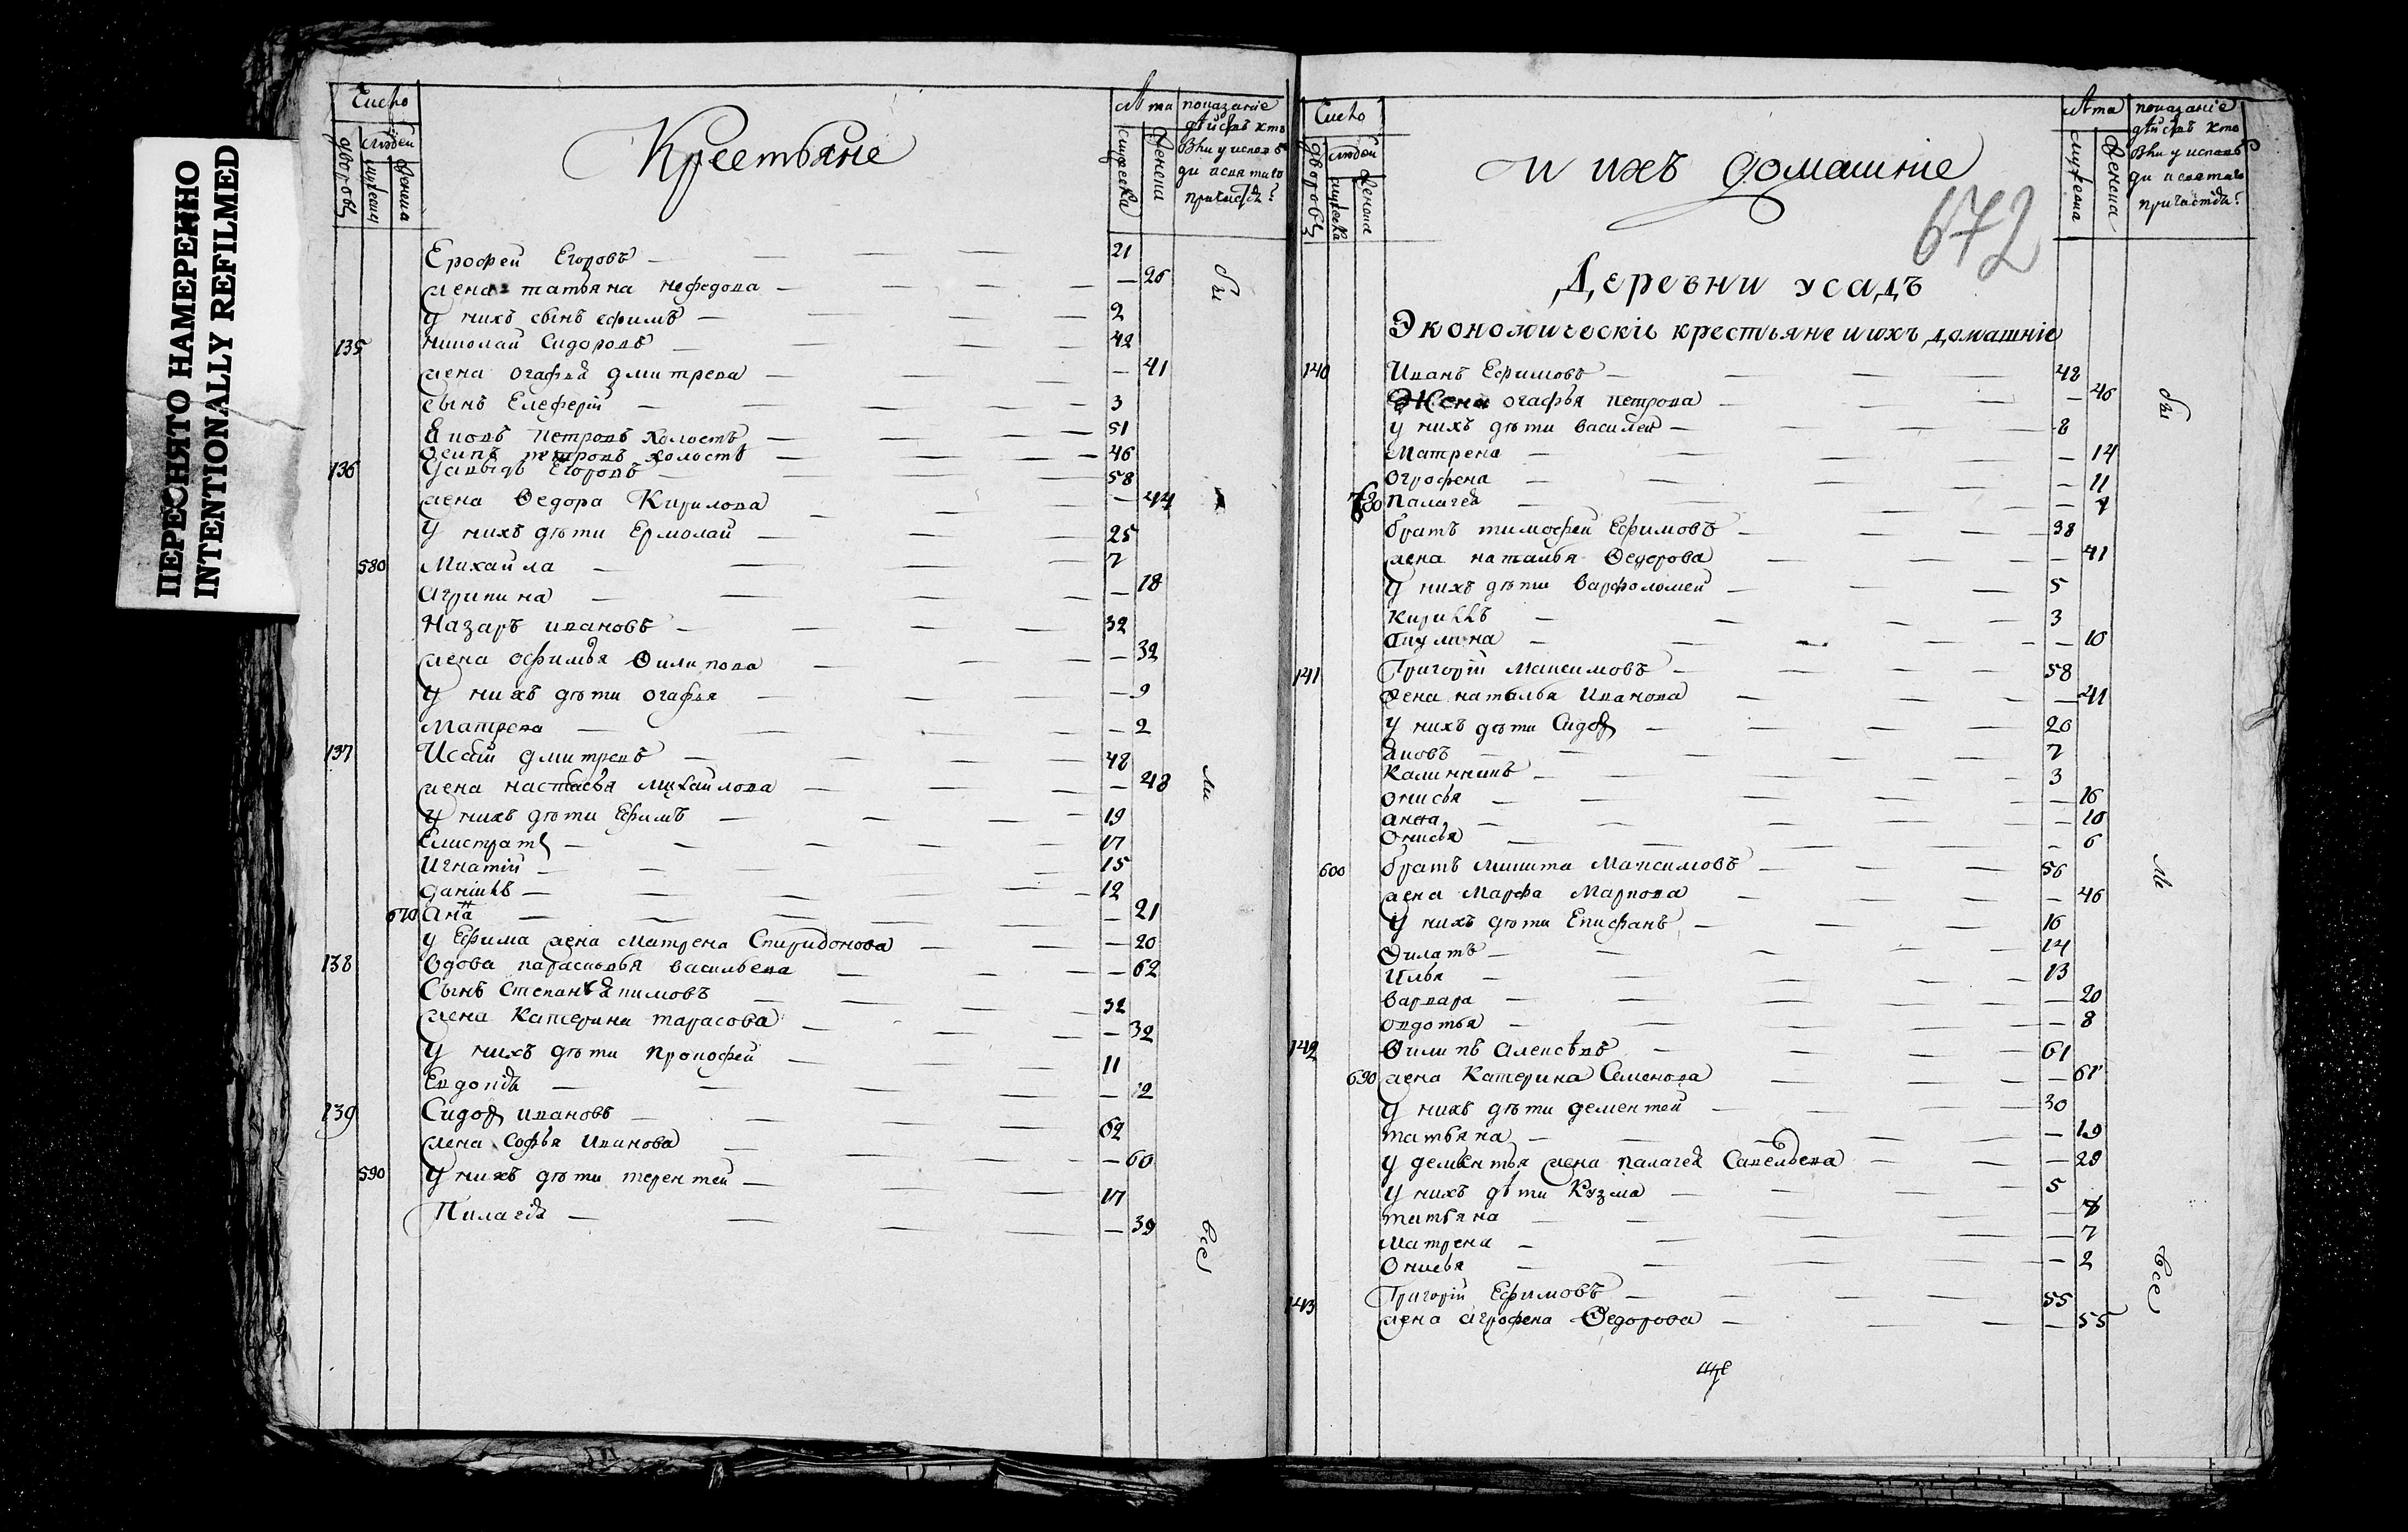 ПЕРЕСНЯТО НАМЕРЕННО
INTENTIONALLY REFILMED
Число
дворовъ
людей
мужеска
женска
Крестьяне
лѣта
мужеска
женска
показаніе
дѣйствъ кто
былъ у исповѣ
ди и святаго
причастія?
Ерофей Егоровъ 21
жена татьяна нефедова 26
у нихъ сынъ ефимъ 2
135 николай Сидоровъ 42
жена огафья дмитрева 41
сынъ Елеферій 3
Яковъ петровъ холостъ 51
Осипъ петровъ холостъ 46
136 Давыдъ Егоровъ 58
жена Ѳедора Кирилова 44
У нихъ дѣти Ермолай 25
580 Михайла 7
агрипина 18
Назаръ ивановъ 32
жена офимья Ѳилипова 32
у нихъ дѣти огафья 9
Матрена 2
137 Исай дмитревъ 48
жена настасья михайлова 48
у нихъ дѣти Ефимъ 19
Елистратъ 17
Игнатій 15
даніилъ 12
670 анна 21
у Ефима жена матрена Спиридонова 20
138 вдова парасковья васильева 62
Сынъ Степанъ якимовъ 32
жена Катерина тарасова 32
У нихъ дѣти прокофей 11
Евдокія 12
139 Сидоръ ивановъ 62
жена Софья иванова 60
590 у нихъ дѣти терентей 17
Пилагея 39
бы
ли
всѣ
Число
дворовъ
людей
мужеска
женска
и ихъ домашніе
672
лѣта
мужеска
женска
показаніе
дѣйствъ кто
былъ у исповѣ
ди и святаго
причастія?
Деревни усадъ
Экономическіе крестьяне и ихъ домашніе
140 Иванъ Ефимовъ 48
Жена огафья петрова 46
у нихъ дѣти василей 8
Матрена 14
огрофена 11
палагея
братъ тимофей Ефимовъ 38
жена наталья Ѳедорова 41
у нихъ дѣти варфоломей 5
Кириллъ 3
акулина 10
141 Григорій Максимовъ 58
жена наталья Иванова 41
у нихъ дѣти Сидоръ 20
яковъ 7
Калинникъ 3
онисья 16
анна 10
онисья 6
600 братъ микита Максимовъ 56
жена Марфа Маркова 46
у нихъ дѣти Епифанъ 16
Ѳилатъ 14
илья 13
варвара 20
овдотья 8
142 Ѳилипъ алексѣевъ 61
690 жена Катерина Семенова 61
у нихъ дѣти дементей 30
татьяна 19
у дементья жена палагея Савельева 29
у нихъ дѣти Кузма 5
татьяна
матрена 7
онисья 2
143 Григорій Ефимовъ 55
жена агрофена Ѳедорова 55
бы
ли
всѣ